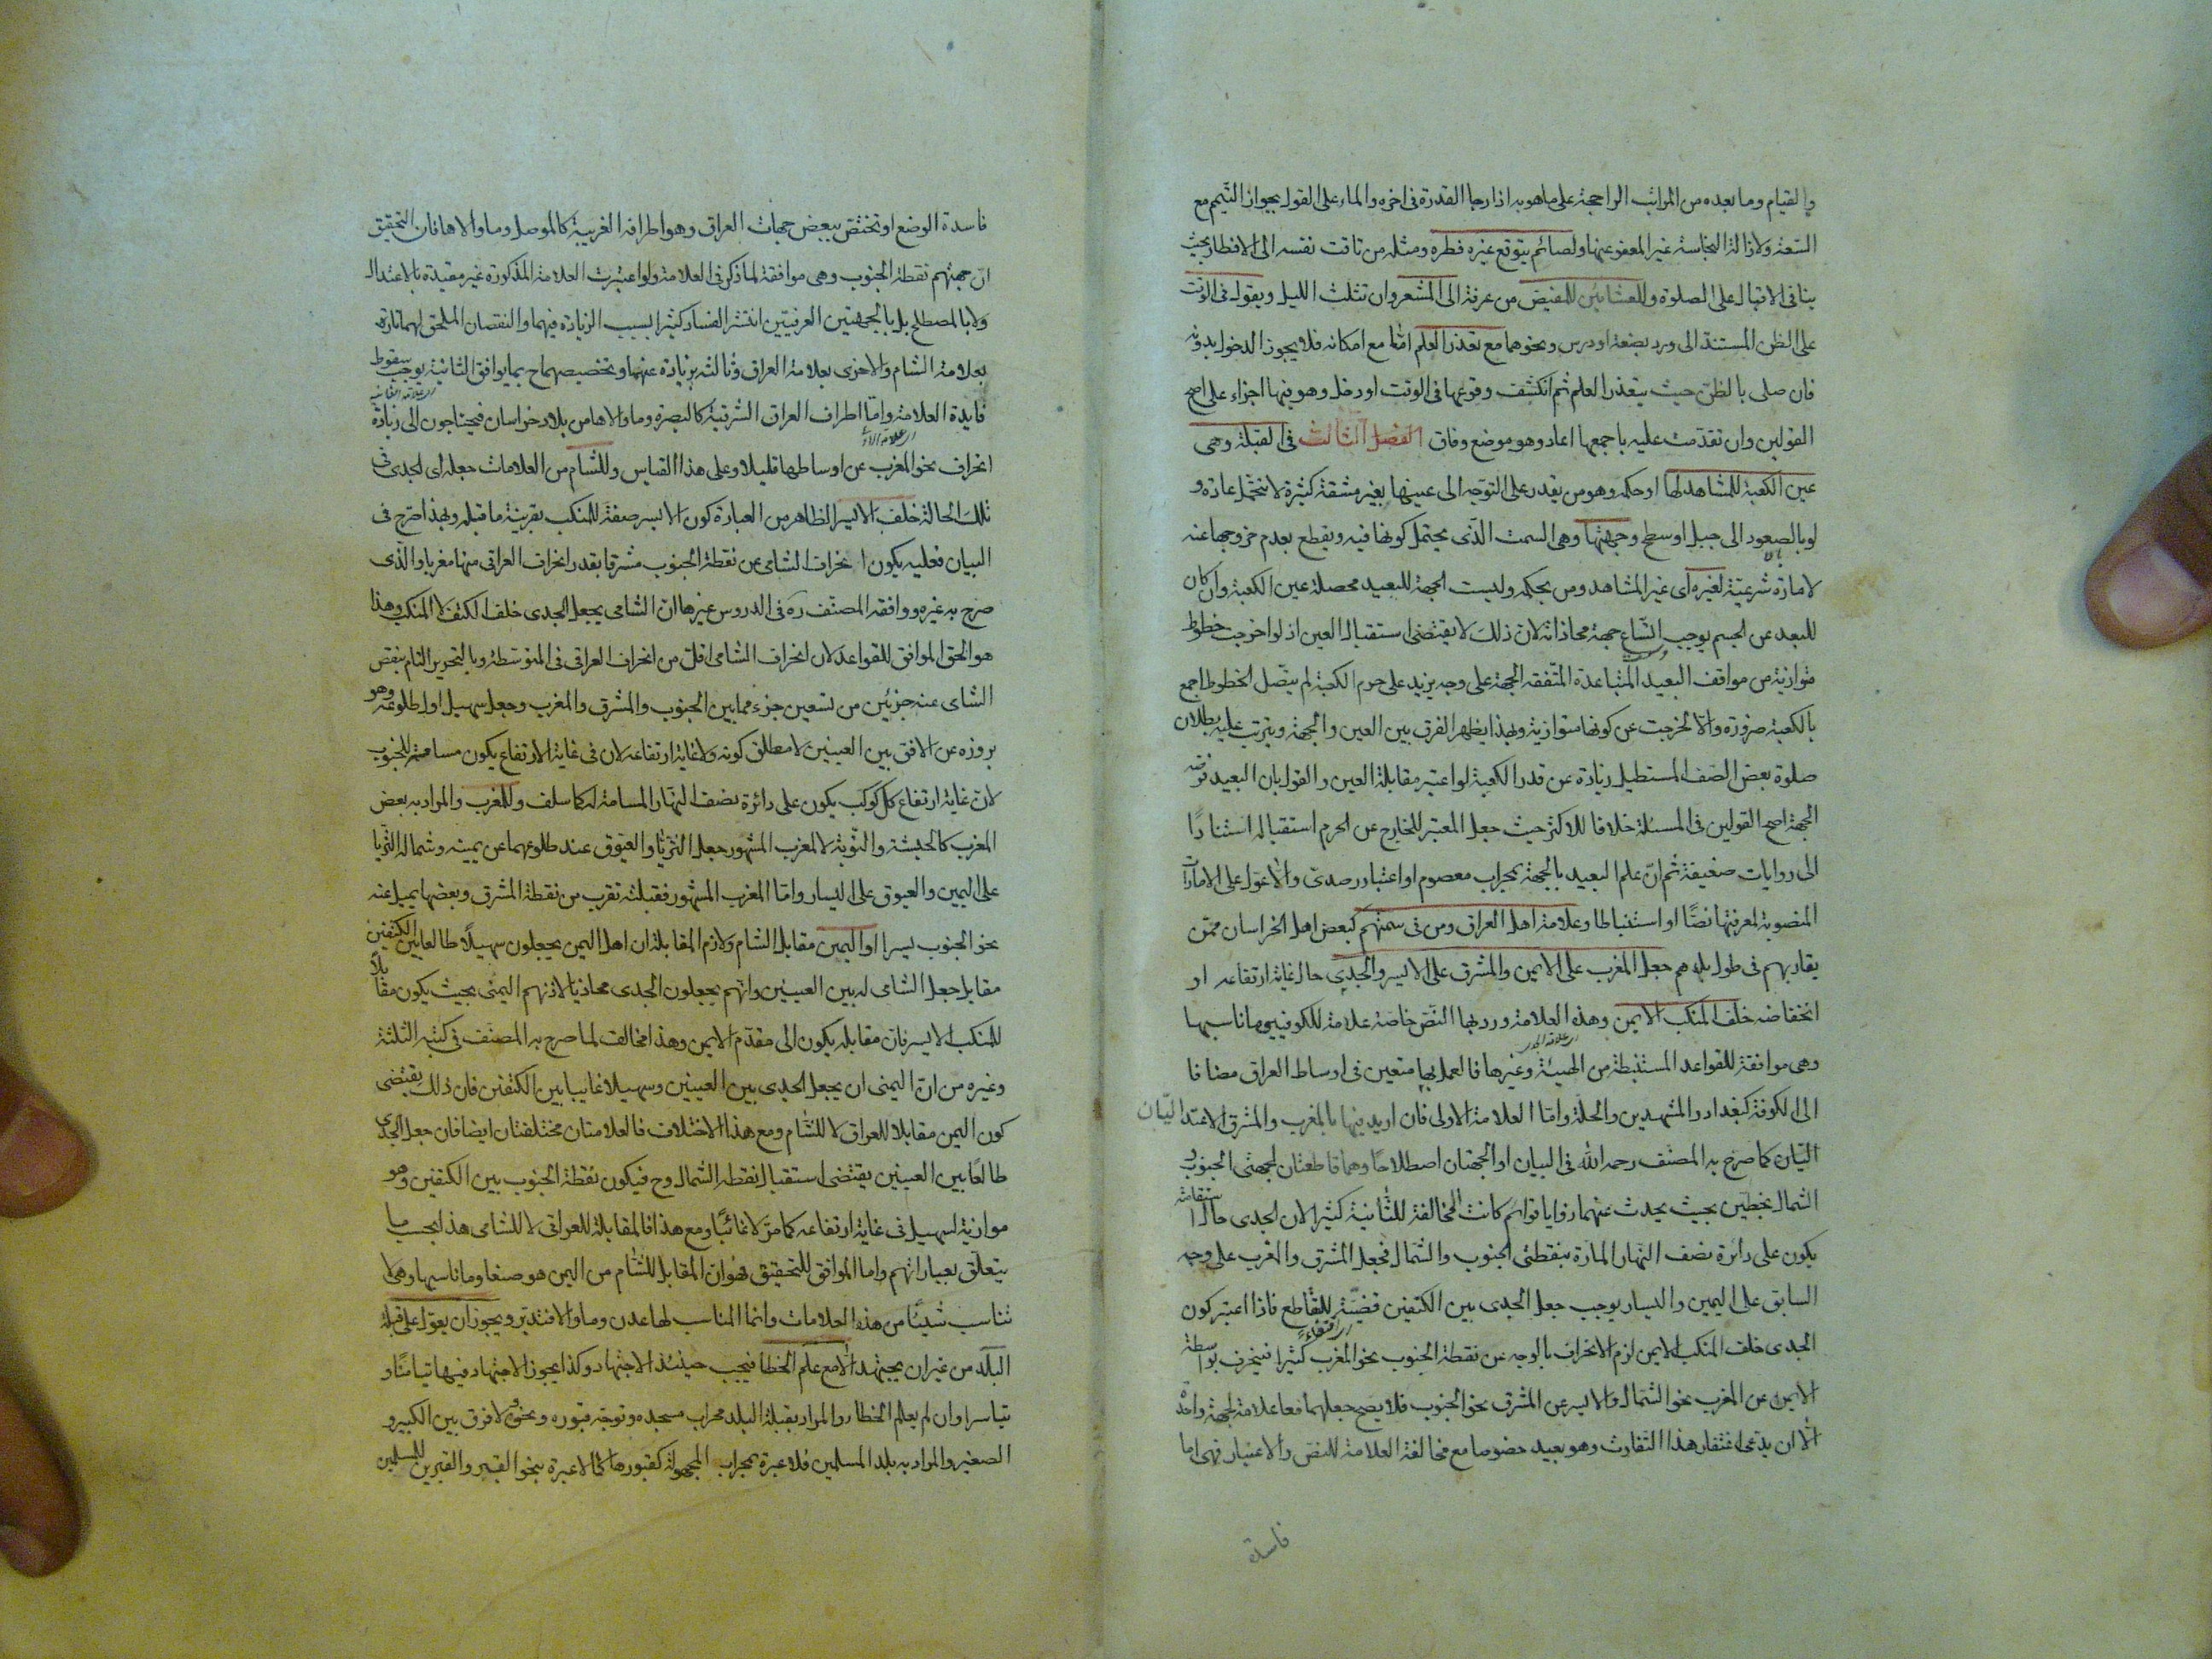 والقيام وما بعده من المراتب الراجحة على ما هو به اذا رجا القدرة فى اخره والماء على القول بجواز التيمم مع
السعة ولازالة النجاسة غير المعفو عنها ولصائم يتوقع غيره فطره ومثله من تاقت نفسه الى الافطار بحيث
ينافى الاقبال على الصلوة وللعشائين للمفيض من عرفة الى المشعر وان تثلث الليل ويعول فى الوقت
على الظن المستند الى ورد بصنعة او درس ونحوهما مع تعذر العلم امّا مع امكانه فلا يجوز الدخول بدونه
فان صلى بالظن حيث يتعذر العلم ثم انكشف وقوعها فى الوقت او دخل وهو فيها اجزاء على اصح
القولين وان تقدمت عليه باجمعها اعاد وهو موضع وفاق الفصل الثالث فى القبلة وهى
عين الكعبة للمشاهد لها او حكمه وهو من يقدر على التوجه الى عينها بغير مشقة كثيرة لا تتحمل عادة و
لو بالصعود الى جبل او سطح وجهتها وهى السمت الذى يحتمل كونها فيه ويقطع بعدم خروجها عنه
لامارة شرعية لغيره اى غير المشاهد ومن بحكمه وليست الجهة للبعيد محصلة عين الكعبة وان كان
للبعد عن الجسم يوجب اتساع جهة محاذاته لان ذلك لا يقتضى استقبال العين اذ لو اخرجت خطوط
متوازية من مواقف البعيد المتباعدة المتفقه الجهة على وجه يزيد على جرم الكعبة لم يتصل الخطوط اجمع
بالكعبة ضرورة والا لخرجت عن كونها متوازية وبهذا يظهر الفرق بين العين والجهة ويترتب عليه بطلان
صلوة بعض الصف المستطيل زيادة عن قدر الكعبة لو اعتبر مقابلة العين والقول بان البعيد فرضه
الجهة اصح القولين فى المسئلة خلافا للاكثر حيث جعل المعتبر للخارج عن الحرم استقباله استنادًا
الى روايات ضعيفة ثم ان علم البعيد بالجهة بمحراب معصوم او اعتبار رصدى والا عول على الامارات
المنصوبة لمعرفتها نصًا او استنباطا وعلامة اهل العراق ومن فى سمتهم كبعض اهل الخراسان ممن
يقاربهم فى طول بلدهم جعل المغرب على الايمن والمشرق على الايسر والجدى حال غاية ارتفاعه او
انخفاضه خلف المنكب الايمن وهذه العلامة ورد بها النص خاصة علامة للكوفيين وما ناسبها
وهى موافقة للقواعد المستنبطة من الهيئة وغيرها فالعمل بها متعين فى اوساط العراق مضافا
الى الكوفة كبغداد والمشهدين والحلة وامّا العلامة الاولى فان اريد فيها بالمغرب والمشرق الاعتداليان
اليان كما صرح به المصنف رحمه الله فى البيان او الجهتان اصطلاحًا وهما قاطعتان لجهتى الجنوب و
الشمال بخطين بحيث يحدث عنهما زوايا قوائم كانت المخالفة للثانية كثيرا لان الجدى حال استقامته
يكون على دائرة نصف النهار المارة بنقطتى الجنوب والشمال فجعل المشرق والمغرب على وجه
السابق على اليمين واليسار يوجب جعل الجدى بين الكتفين قضيّة للتقاطع فاذا اعتبر كون
الجدى خلف المنكب الايمن لزم الانحراف بالوجه عن نقطة الجنوب نحو المغرب كثيرا فينحرف بواسطة
الايمن عن المغرب نحو الشمال والايسر عن المشرق نحو الجنوب فلا يصح جعلهما معا علامة لجهة واحدة
الّا ان يدعى اغتفار هذا التفاوت وهو بعيد خصوصا مع مخالفة العلامة للنص والاعتبار فهى اما
فاسدة
فاسدة الوضع او تختص ببعض جهات العراق وهو اطرافه الغربية كالموصل وما والاها فان التحقيق
ان جهتهم نقطة الجنوب وهى موافقة لما ذكر فى العلامة ولو اعتبرت العلامة المذكورة غير مقيدة بالاعتدال
ولا بالمصطلح بل بالجهتين العرفيتين انتشر الفساد كثيرا بسبب الزيادة فيهما والنقصان الملحق لهما تارة
بعلامة الشام والاخرى بعلامة العراق وثالثه بزيادة عنهما وتخصيصهما ح بما يوافق الثانية يوجب سقوط
فايدة العلامة وامّا اطراف العراق الشرقية كالبصرة وما والاها من بلاد خراسان فيحتاجون الى زيادة
انحراف نحو المغرب عن اوساطها قليلا وعلى هذا القياس وللشام من العلامات جعله اى الجدى فى
تلك الحالة خلف الايسر الظاهر من العبارة كون الايسر صفة للمنكب بقرينة ما قبله وبهذا صرح فى
البيان فعليه يكون انحراف الشامى عن نقطة الجنوب مشرقا بقدر انحراف العراقى عنها مغربا والذى
صرح به غيره ووافقه المصنف ره فى الدروس غيرها ان الشامى يجعل الجدى خلف الكتف لا المنكب وهذا
هو الحق الموافق للقواعد لان انحراف الشامى اقل من انحراف العراقى فى المتوسطة وبالتحرير التام ينقص
الشامى عنه جزئين من تسعين جزء مما بين الجنوب والمشرق والمغرب وجعل سهيل اول طلوعه وهو
بروزه عن الافق بين العينين لا مطلق كونه ولا غاية ارتفاعه لان فى غاية الارتفاع يكون مسامتا للجنوب
لان غاية ارتفاع كل كوكب يكون على دائرة نصف النهار المسامتة له كما سلف وللمغرب والمراد به بعض
المغرب كالحبشة والنوبة لا المغرب المشهور جعل الثريا والعيوق عند طلوعهما عن يمينه وشماله الثريا
على اليمين والعيوق على اليسار وامّا المغرب المشهور فقبلته تقرب من نقطة المشرق وبعضها يميل عنه
نحو الجنوب يسيرا واليمن مقابل الشام ولازم المقابلة ان اهل اليمن يجعلون سهيلًا طالعا بين الكتفين
مقابل جعل الشامى له بين العينين وانهم يجعلون الجدى محاذيا لاذنهم اليمنى بحيث يكون مقابلًا
للمنكب الايسر فان مقابله يكون الى مقدم الايمن وهذا مخالف لما صرح به المصنف فى كتبه الثلثة
وغيره من ان اليمنى ان يجعل الجدى بين العينين وسهيلا غايبا بين الكتفين فان ذلك يقتضى
كون اليمن مقابلا للعراق لا للشام ومع هذا الاختلاف فالعلامتان مختلفتان ايضا فان جعل الجدى
طالعًا بين العينين يقتضى استقبال نقطه الشمال وح فيكون نقطة الجنوب بين الكتفين وهو
موازية لسهيل فى غاية ارتفاعه كما مرّ لا غائبًا ومع هذا فالمقابلة للعراقى لا للشامى هذا بحسب ما
يتعلق بعباراتهم واما الموافق للتحقيق فهو ان المقابل للشام من اليمن هو صنعا وما ناسبها وهى لا
تناسب شيئًا من هذه العلامات وانما المناسب لها عدن وما والا فتدبر ويجوز ان يعول على قبلة
البلد من غير ان يجتهد الا مع علم الخطأ فيجب حينئذ الاجتهاد وكذا يجوز الاجتهاد فيها تيامنًا و
تياسرا وان لم يعلم الخطا والمراد بقبلة البلد محراب مسجده وتوجه قبوره ونحوه ولا فرق بين الكبير و
الصغير والمراد به بلد المسلمين فلا عبرة بمحراب المجهولة كقبورها كما لا عبرة بنحو القبر والقبرين للمسلمين